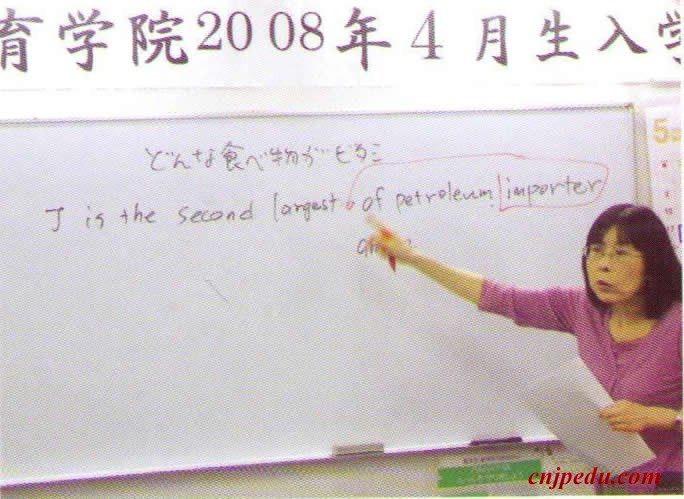 育学院2008年4月生入学
どんな食べ物がビタミ
J is the second largest of petroleum importer
cnjpedu.com